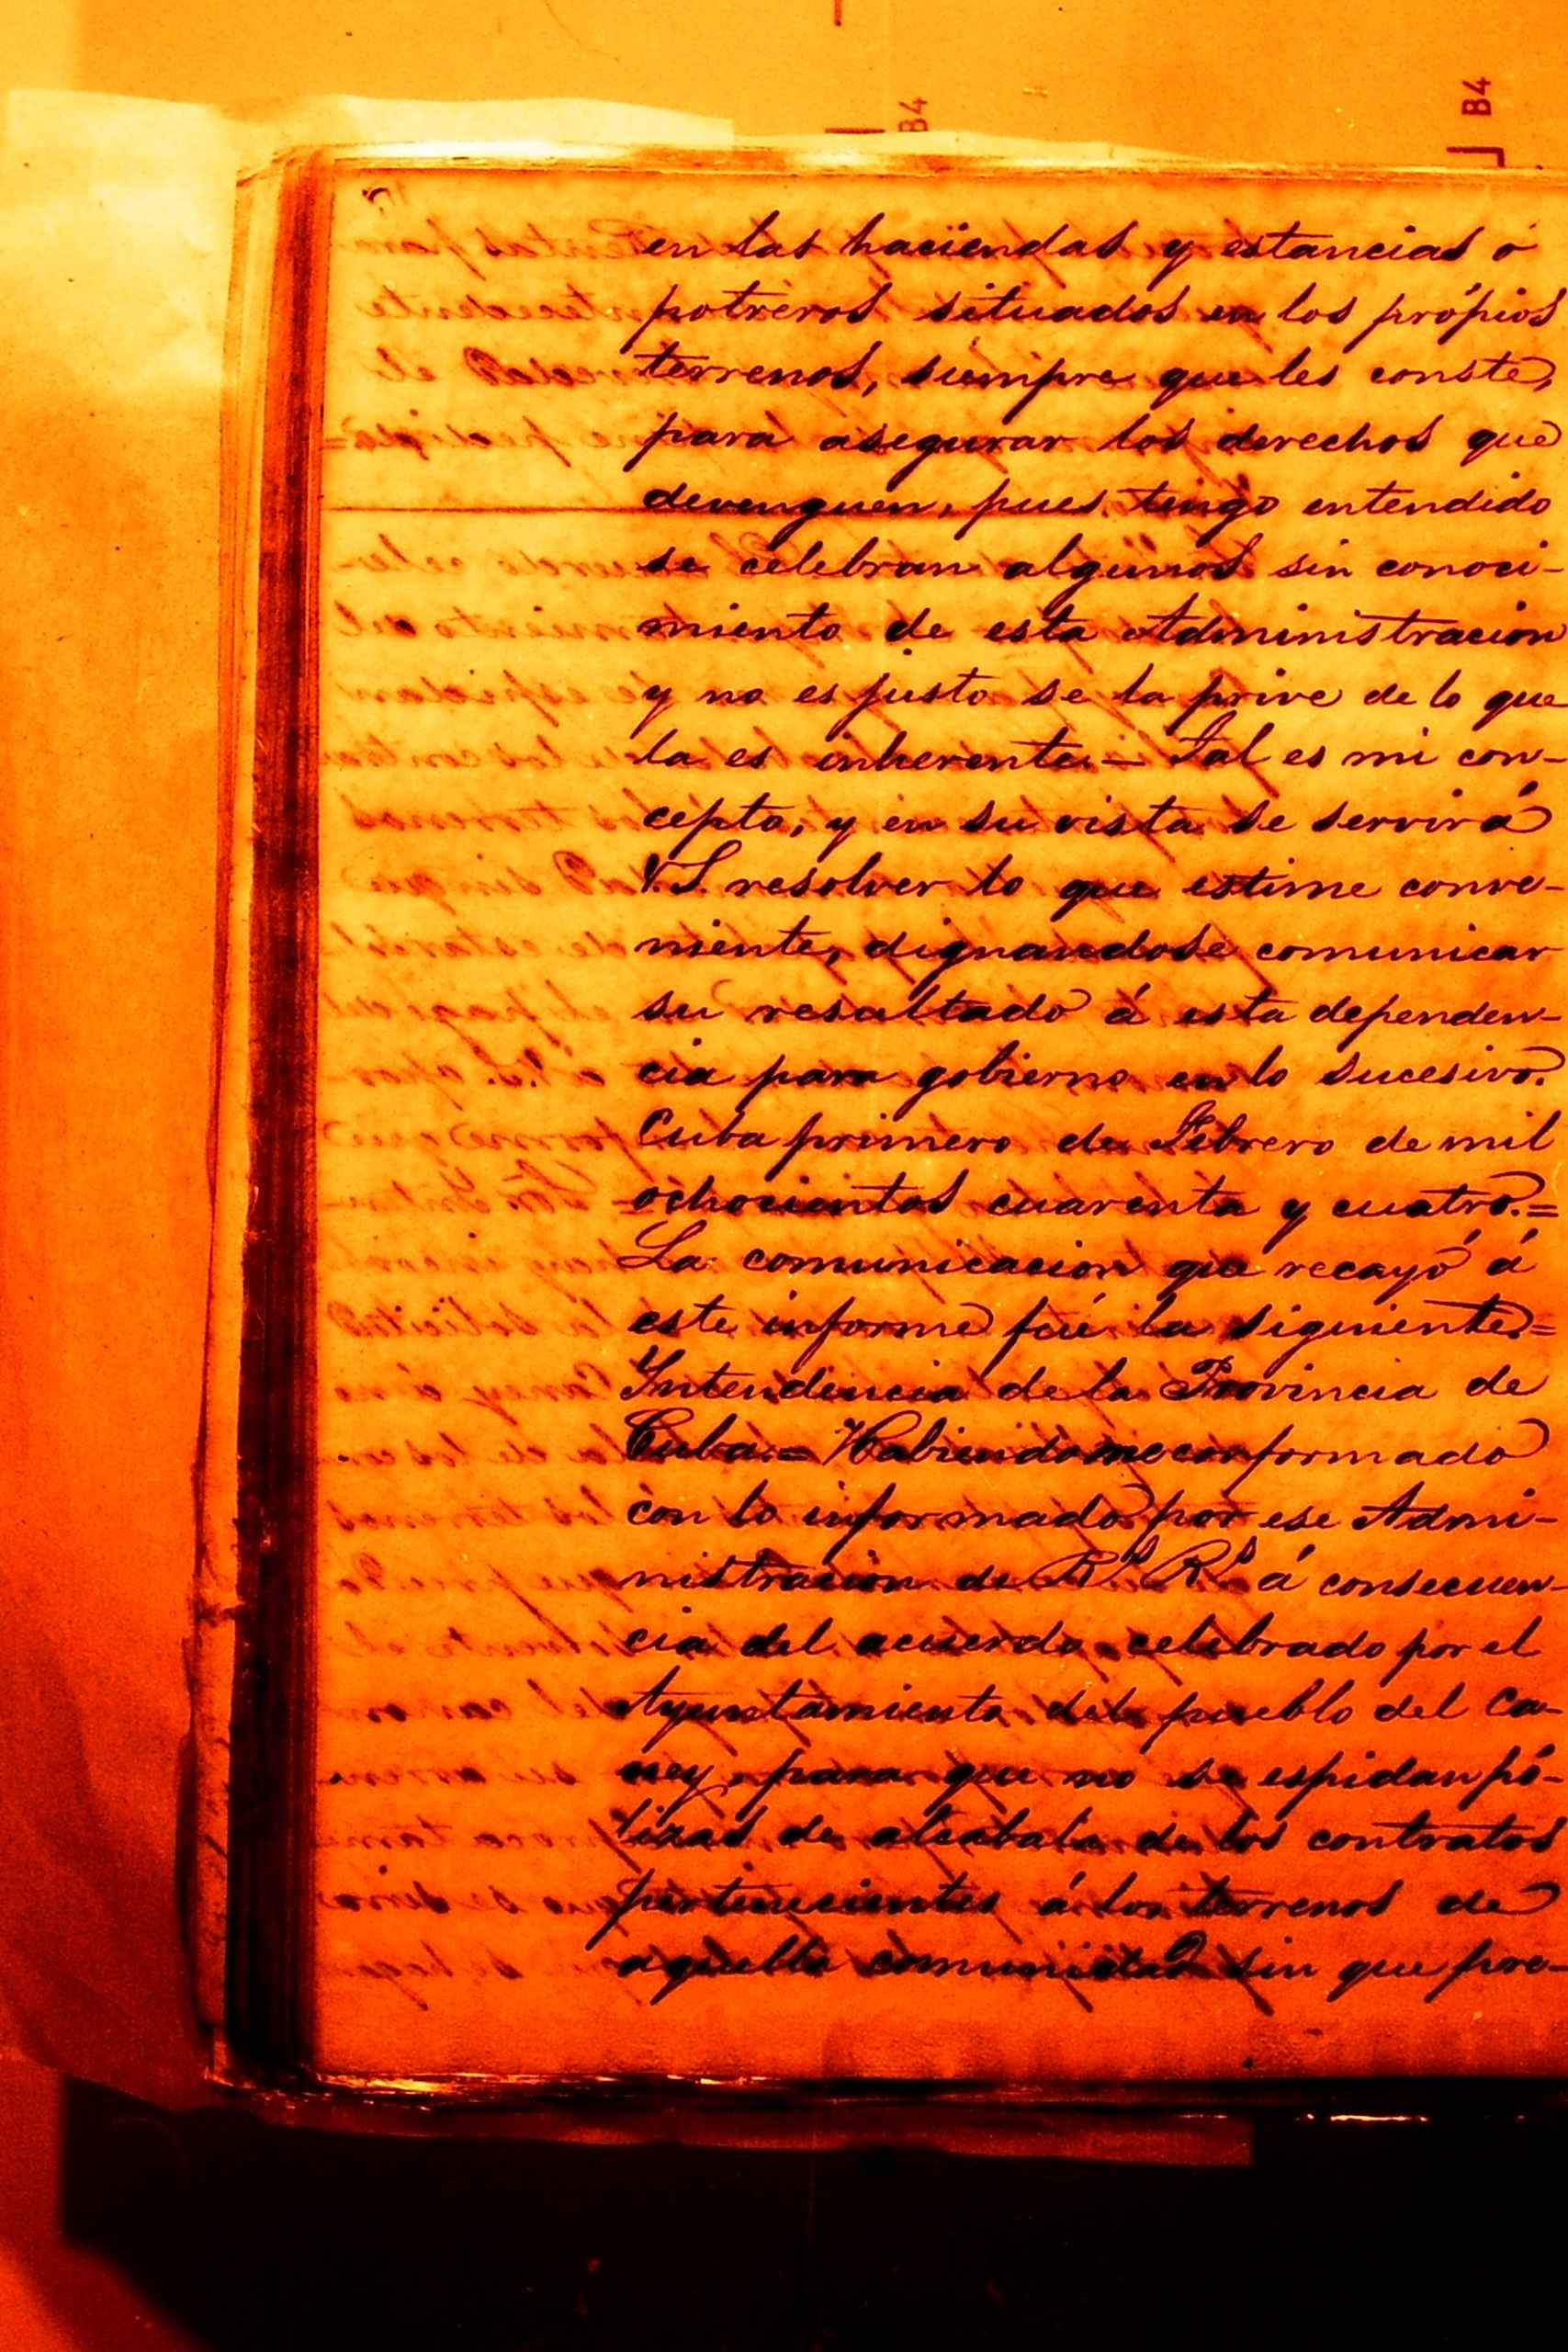 B4
B4
en las haciendas y estancias ó
potreros situados en los própios
terrenos, siempre que les conste,
para asegurar los derechos que
devenguen, pues tengo entendido
se celebran algunos sin conoci-
miento de esta Administracion
y no es justo se la prive de lo que
la es inherente.— Tal es mi con-
cepto, y en su vista se servirá
V.S. resolver lo que estime conve-
niente, dignandose comunicar
su resultado á esta dependen-
cia para gobierno en lo sucesivo.
Cuba primero de Febrero de mil
ochocientos cuarenta y cuatro.=
La comunicacion que recayó á
este informe fué la siguiente.=
Intendencia de la Provincia de
Cuba.= Habiendome conformado
con lo informado por ese Admi-
nistracion de Rs Rs á consecuen-
cia del acuerdo celebrado por el
Ayuntamiento del pueblo del Ca-
ney, para que no se espidan pó-
lizas de alcabala de los contratos
pertenecientes á los terrenos de
aquella comunidad sin que pre-